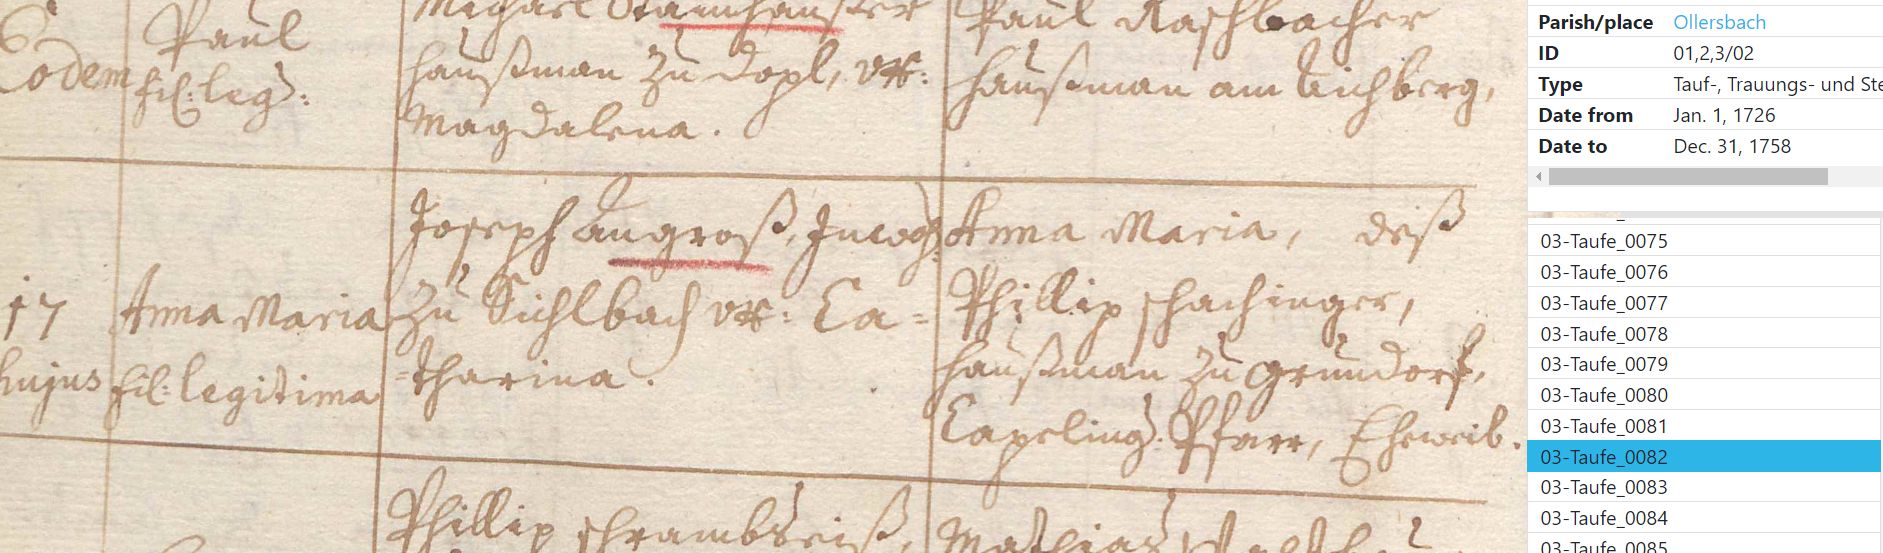 Michael
Paul
Paul Raschbacher
Eodem
fil: leg:
haußman zu Dopl, ux:
haußman am Aichberg,
Magdalena.
Joseph Angroß, Inwoh:
Anna Maria, deß
17
Anna Maria
zu Sichlbach ux: Ca=
Phillip schachinger,
hujus
fil: legitima
=tharina.
haußman zu Grundorf,
Capeling: Pfarr, Eheweib.
Phillip
Mathias
Parish/place Ollersbach
ID 01,2,3/02
Type Tauf-, Trauungs- und Ste
Date from Jan. 1, 1726
Date to Dec. 31, 1758
03-Taufe_0075
03-Taufe_0076
03-Taufe_0077
03-Taufe_0078
03-Taufe_0079
03-Taufe_0080
03-Taufe_0081
03-Taufe_0082
03-Taufe_0083
03-Taufe_0084
03-Taufe_0085